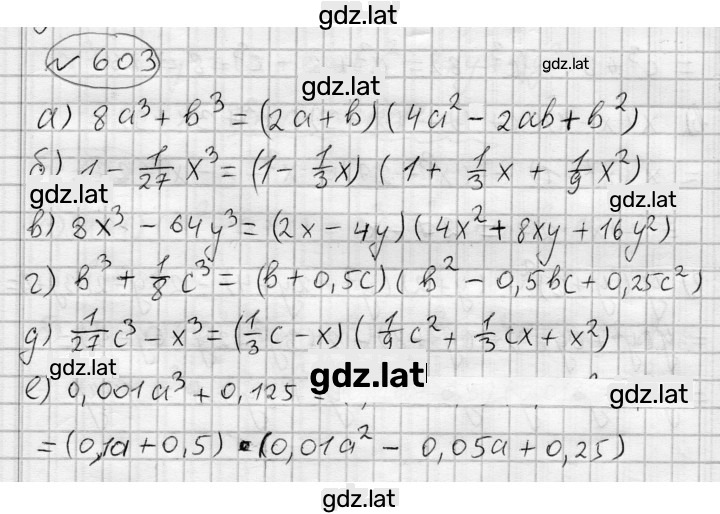 gdz.lat
№ 603
gdz.lat
gdz.lat
а) 8a³ + b³ = (2a + b) (4a² - 2ab + b²)
б) 1 - 1/27 x³ = (1 - 1/3 x) (1 + 1/3 x + 1/9 x²)
gdz.lat
gdz.lat
в) 8x³ - 64y³ = (2x - 4y) (4x² + 8xy + 16y²)
г) b³ + 1/8 c³ = (b + 0,5c) (b² - 0,5bc + 0,25c²)
д) 1/27 c³ - x³ = (1/3 c - x) (1/9 c² + 1/3 cx + x²)
gdz.lat
gdz.lat
gdz.lat
е) 0,001a³ + 0,125 =
= (0,1a + 0,5) • (0,01a² - 0,05a + 0,25)
gdz.lat